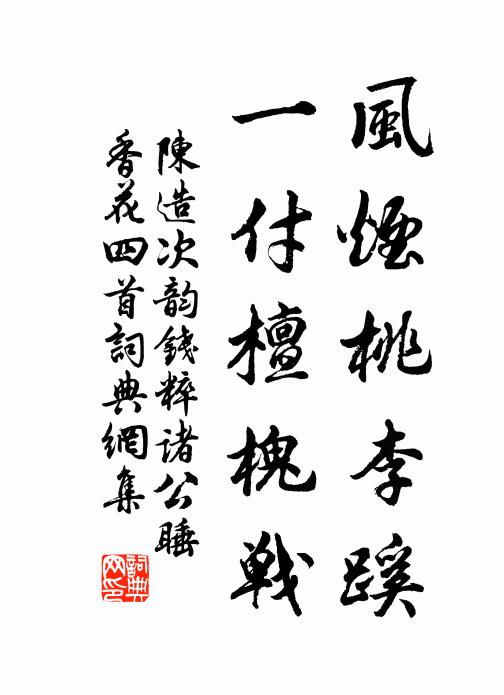 風煙桃李蹊
一付檀槐戰
陳造次韵錢粹諸公睡
香花四首詞典網集
詞典
网印